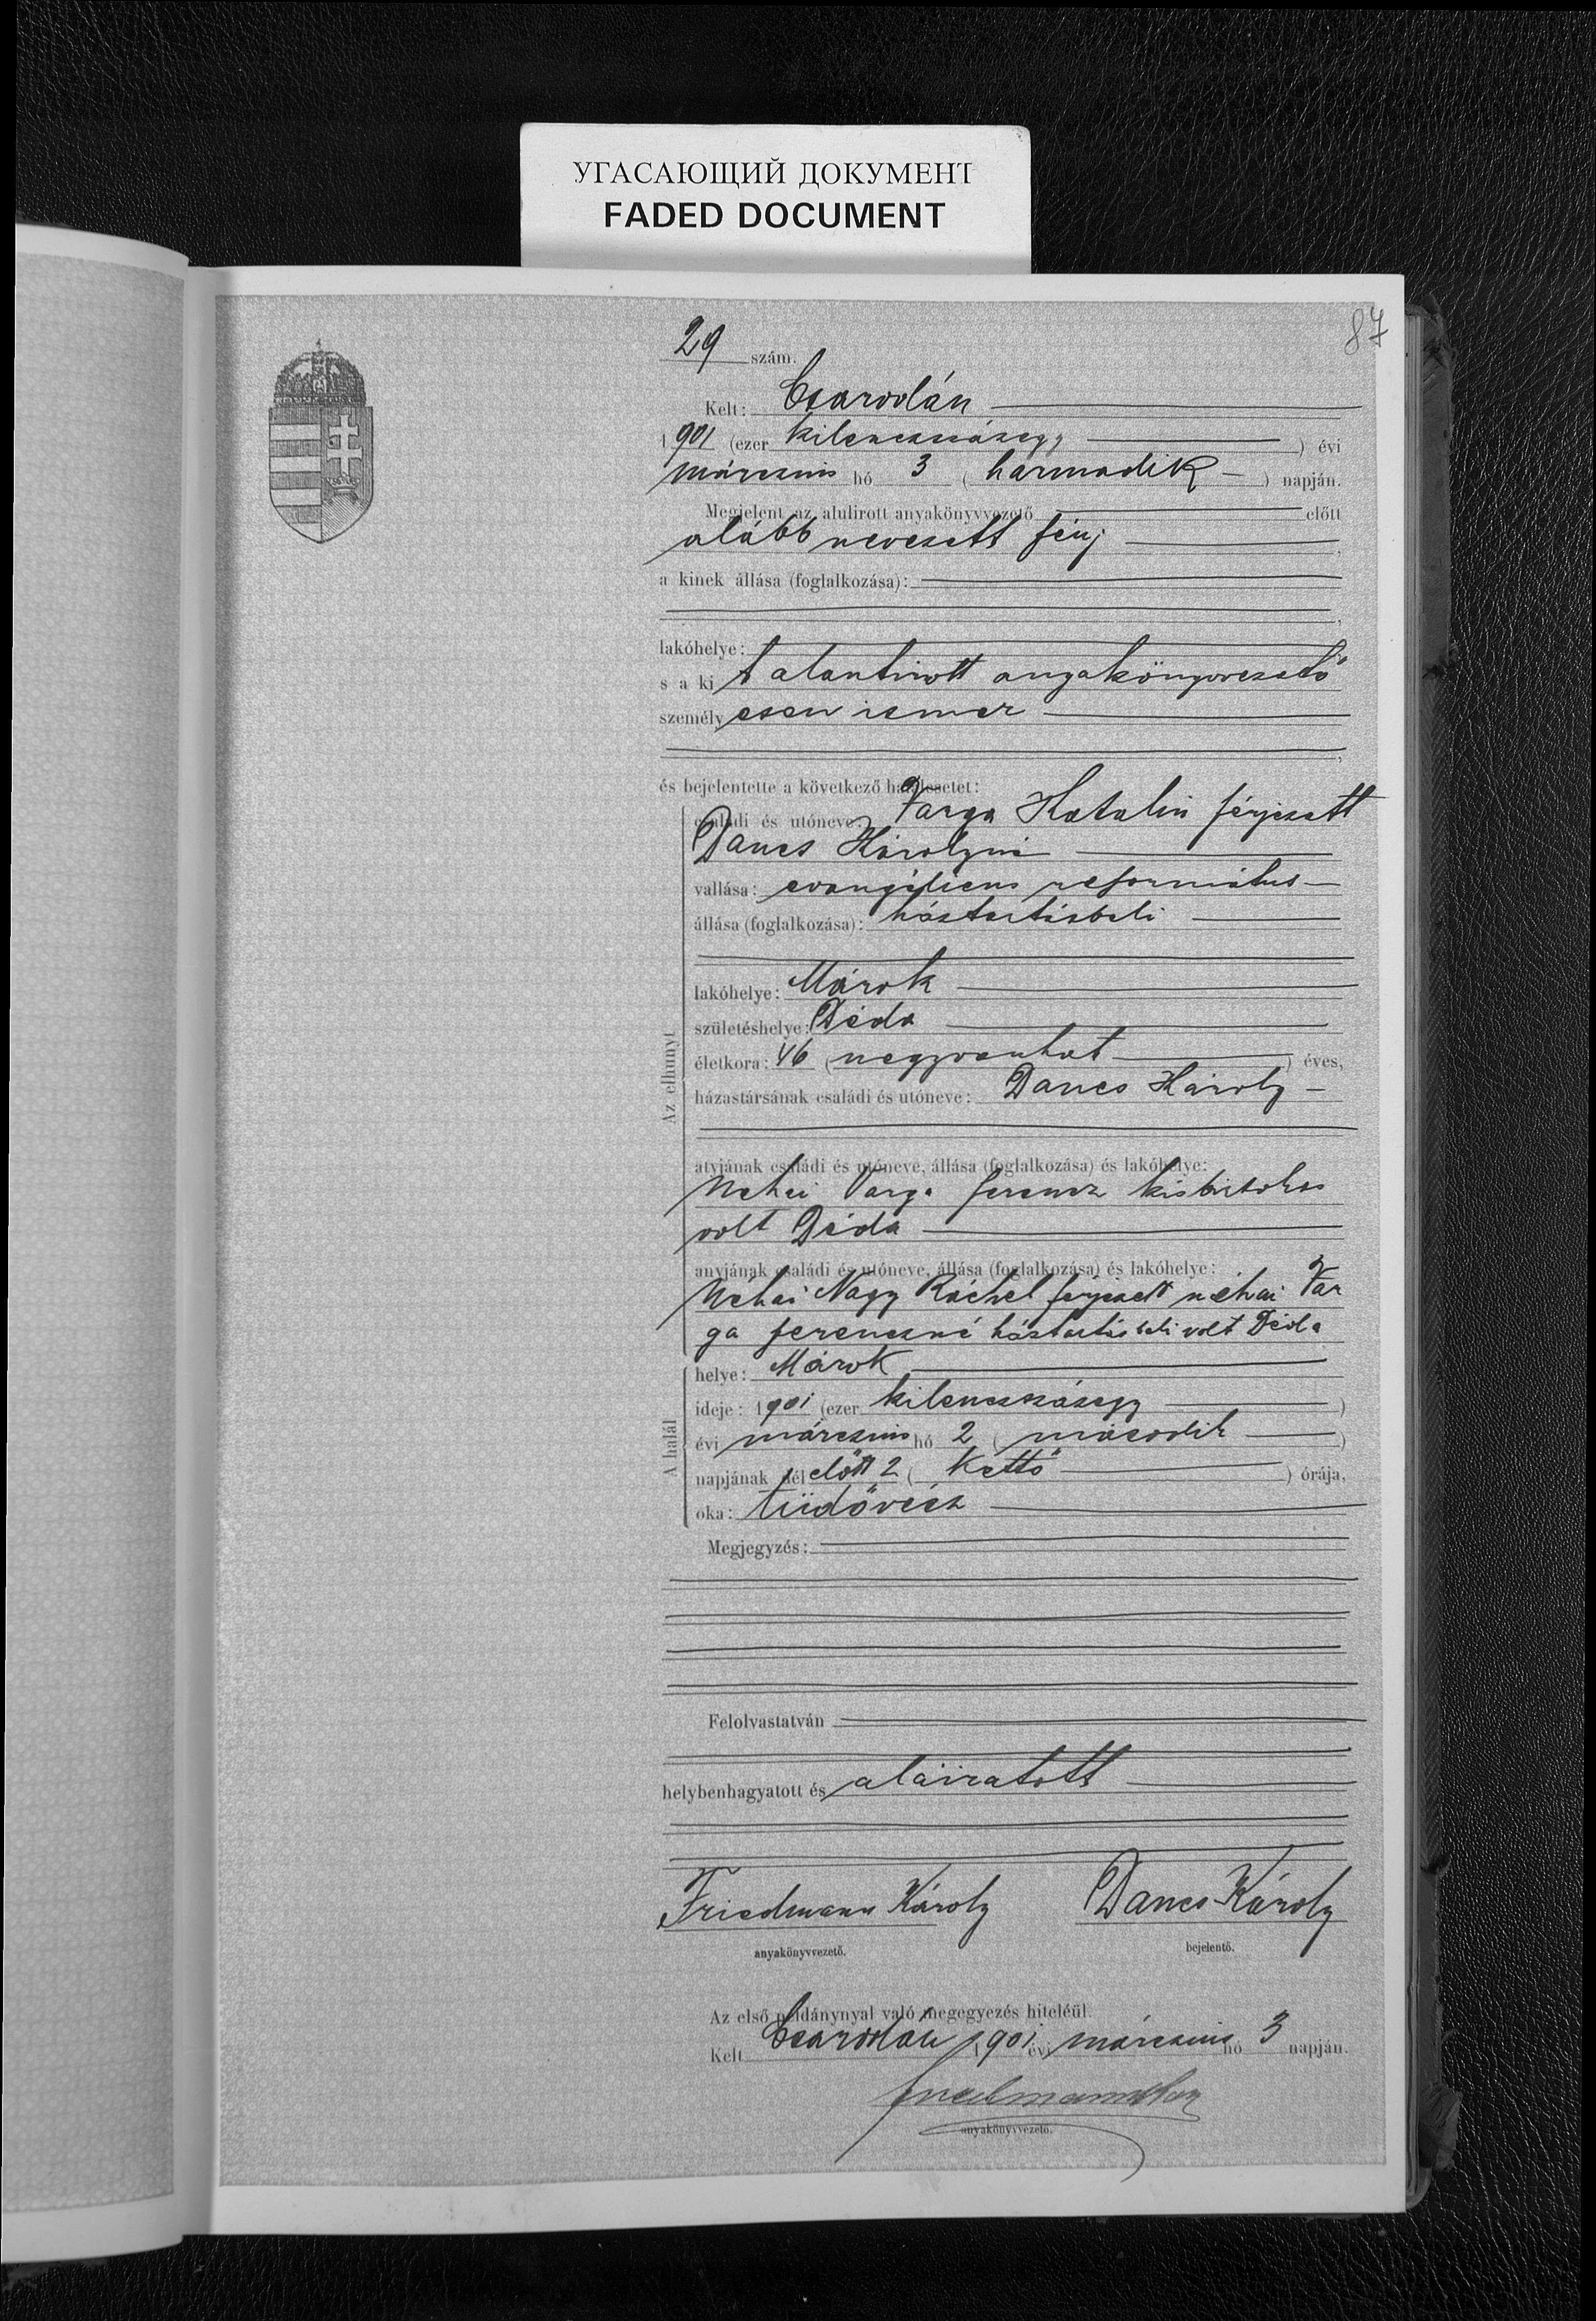 УГАСАЮЩИЙ ДОКУМЕНТ
FADED DOCUMENT
87
29 szám.
Kelt: Csarodán
1901 (ezer kilenczszázegy) évi
márczius hó 3 (harmadik) napján.
Megjelent az alulirott anyakönyvvezető előtt
alább nevezett férj,
a kinek állása (foglalkozása):
lakóhelye:
s a kit alantirott anyakönyvvezető
személyesen ismer
és bejelentette a következő halálesetet:
családi és utóneve: Varga Katalin férjezett
Dancs Károlyné
vallása: evangélicus református
állása (foglalkozása): háztartásbeli
lakóhelye: Márok
születéshelye: Déda
életkora: 46 (negyvenhat) éves,
Az elhunyt
házastársának családi és utóneve: Dancs Károly
atyjának családi és utóneve, állása (foglalkozása) és lakóhelye:
Néhai Varga Ferencz kisbirtokos
volt Déda
anyjának családi és utóneve, állása (foglalkozása) és lakóhelye:
Néhai Nagy Ráchel férjezett néhai Var
ga Ferenczné háztartásbeli volt Déda
helye: Márok
ideje: 1901 (ezer kilenczszázegy)
évi márczius hó 2 (második)
A halál
napjának délelőtt 2 (kettő) órája,
oka: tüdővész
Megjegyzés:
Felolvastatván
helybenhagyatott és aláiratott
Friedmann Károly Dancs Károly
anyakönyvvezető. bejelentő.
Az első példánynyal való megegyezés hiteléül.
Kelt Csarodán 1901 évi márczius hó 3 napján.
anyakönyvvezető.